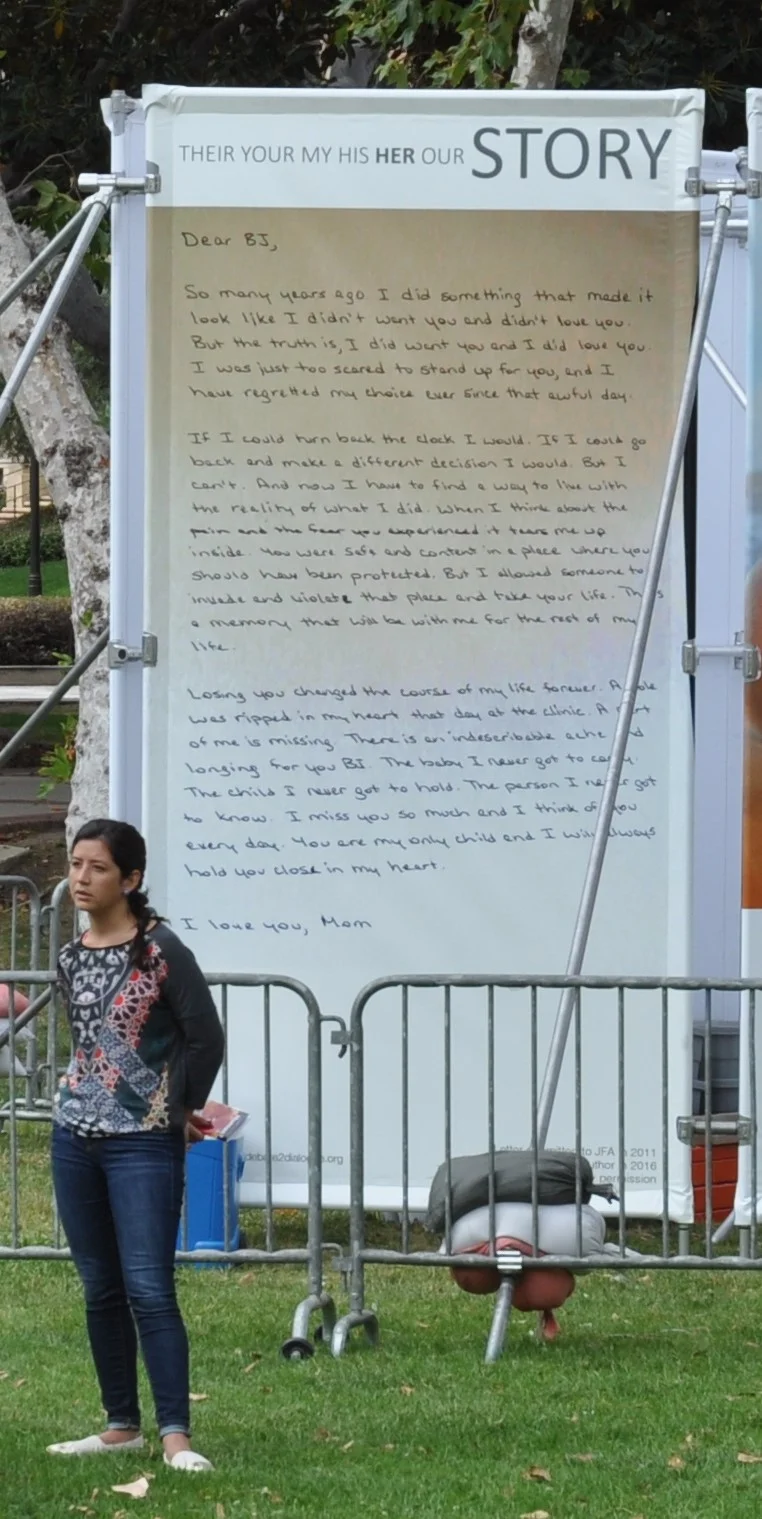 THEIR YOUR MY HIS HER OUR STORY
Dear BJ,
So many years ago I did something that made it
look like I didn't want you and didn't love you.
But the truth is, I did want you and I did love you.
I was just too scared to stand up for you, and I
have regretted my choice ever since that awful day.
If I could turn back the clock I would. If I could go
back and make a different decision I would. But I
can't. And now I have to find a way to live with
the reality of what I did. When I think about the
pain and the fear you experienced it tears me up
inside. You were safe and content in a place where you
should have been protected. But I allowed someone to
invade and violate that place and take your life.
a memory that will be with me for the rest of my
life.
Losing you changed the course of my life forever. A
was ripped in my heart that day at the clinic. A
of me is missing. There is an indescribable ache
longing for you BJ. The baby I never got to carry.
The child I never got to hold. The person I never got
to know. I miss you so much and I think of you
every day. You are my only child and I will always
hold you close in my heart.
I love you, Mom
to JFA in 2011
in 2016
permission